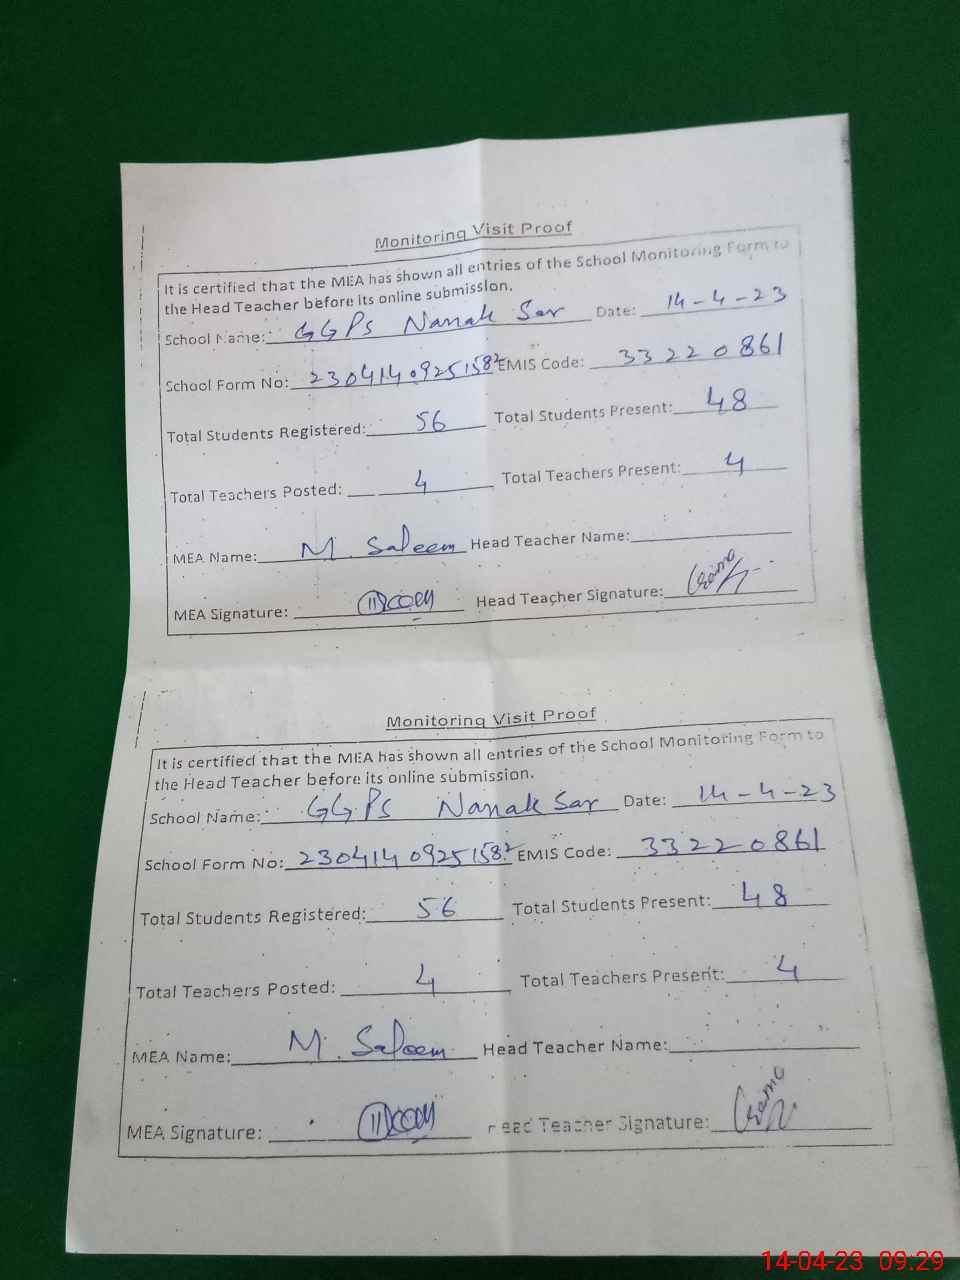 Monitoring Visit Proof
It is certified that the MEA has shown all entries of the School Monitoring Form to
the Head Teacher before its online submission.
School Name: GGPS Nanak Sar Date: 14-4-23
School Form No: 23041409251582 EMIS Code: 33220861
Total Students Registered: 56 Total Students Present: 48
Total Teachers Posted: 4 Total Teachers Present: 4
MEA Name: M. Saleem Head Teacher Name:
MEA Signature: Head Teacher Signature:
Monitoring Visit Proof
It is certified that the MEA has shown all entries of the School Monitoring Form to
the Head Teacher before its online submission.
School Name: GGPS Nanak Sar Date: 14-4-23
School Form No: 23041409251582 EMIS Code: 33220861
Total Students Registered: 56 Total Students Present: 48
Total Teachers Posted: 4 Total Teachers Present: 4
MEA Name: M. Saleem Head Teacher Name:
MEA Signature: Head Teacher Signature:
14-04-23 09:29